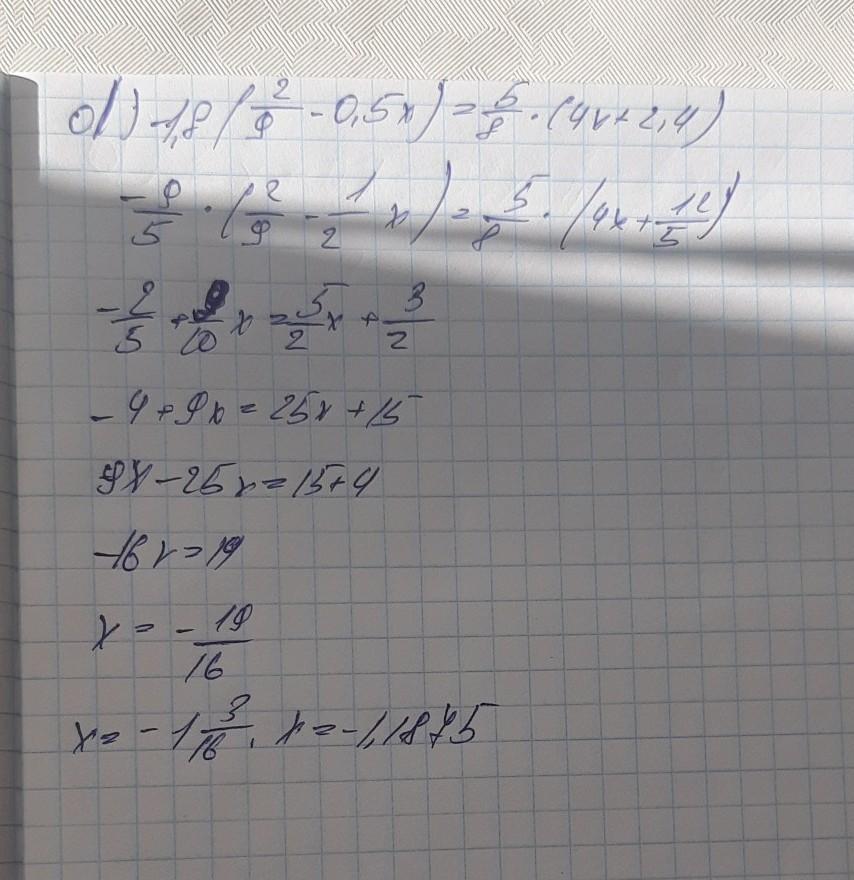 д) -1,8(2/9 - 0,5x) = 5/8 · (4x + 2,4)
-9/5 · (2/9 - 1/2 x) = 5/8 · (4x + 12/5)
-2/5 + 9/10 x = 5/2 x + 3/2
-4 + 9x = 25x + 15
9x - 25x = 15 + 4
-16x = 19
x = -19/16
x = -1 3/16. x = -1,1875